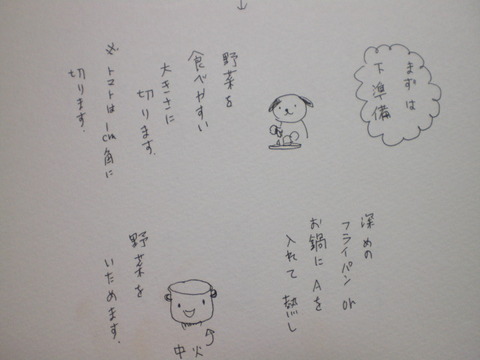 まずは
下準備
野菜を
食べやすい
大きさに
切ります。
※トマトは1cm角に
切ります。
深めの
フライパン or
お鍋に Aを
入れて 熱し
野菜を
いためます。
中火